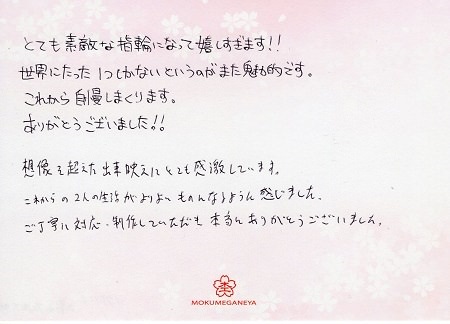 とても素敵な指輪になって嬉しすぎます!!
世界にたった1つしかないというのがまた魅力的です。
これから自慢しまくります。
ありがとうございました!!
想像を超えた出来映えにとても感激しています。
これからの2人の生活がよりよいものになるように感じました。
ご丁寧に対応・制作していただき本当にありがとうございました。
MOKUMEGANEYA